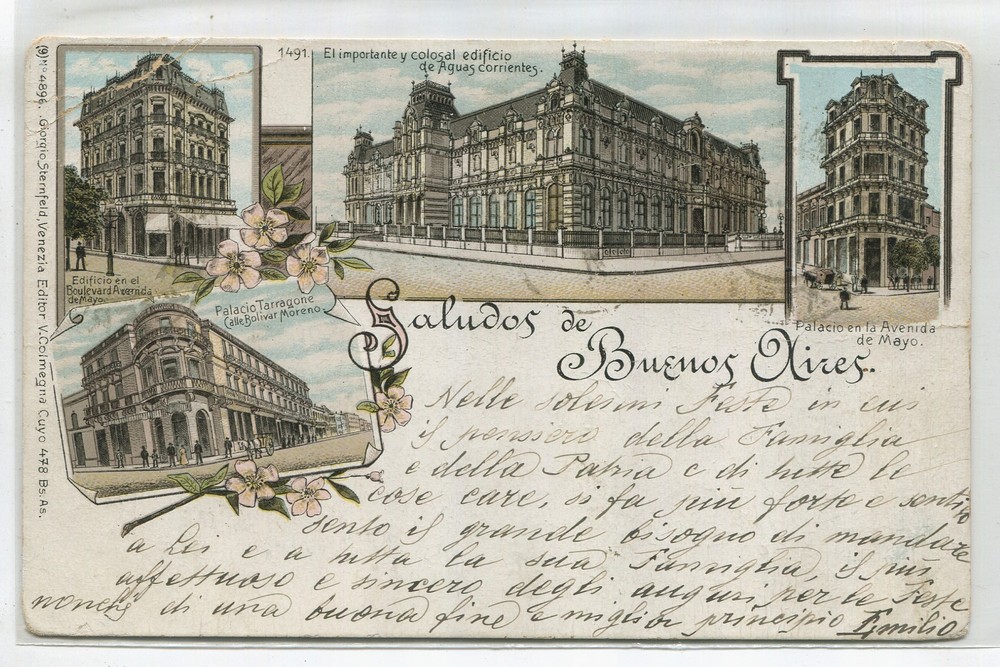 (9) Nº 4896. Giorgio Sternfeld, Venezia Editor V. Colmegna Cuyo 478 Bs. As.
1491.
El importante y colosal edificio
de Aguas corrientes.
Edificio en el
Boulevard Avenida
de Mayo.
Palacio Tarragone
Calle Bolivar Moreno
Palacio en la Avenida
de Mayo.
Saludos de
Buenos Aires.
Nelle solenni Feste in cui
il pensiero della Famiglia
e della Patria e di tutte le
cose care, si fa più forte e sentito
sento il grande bisogno di mandare
a Lei e a tutta la sua Famiglia, il più
affettuoso e sincero degli auguri per le Feste
nonchè di una buona fine e miglior principio
Emilio